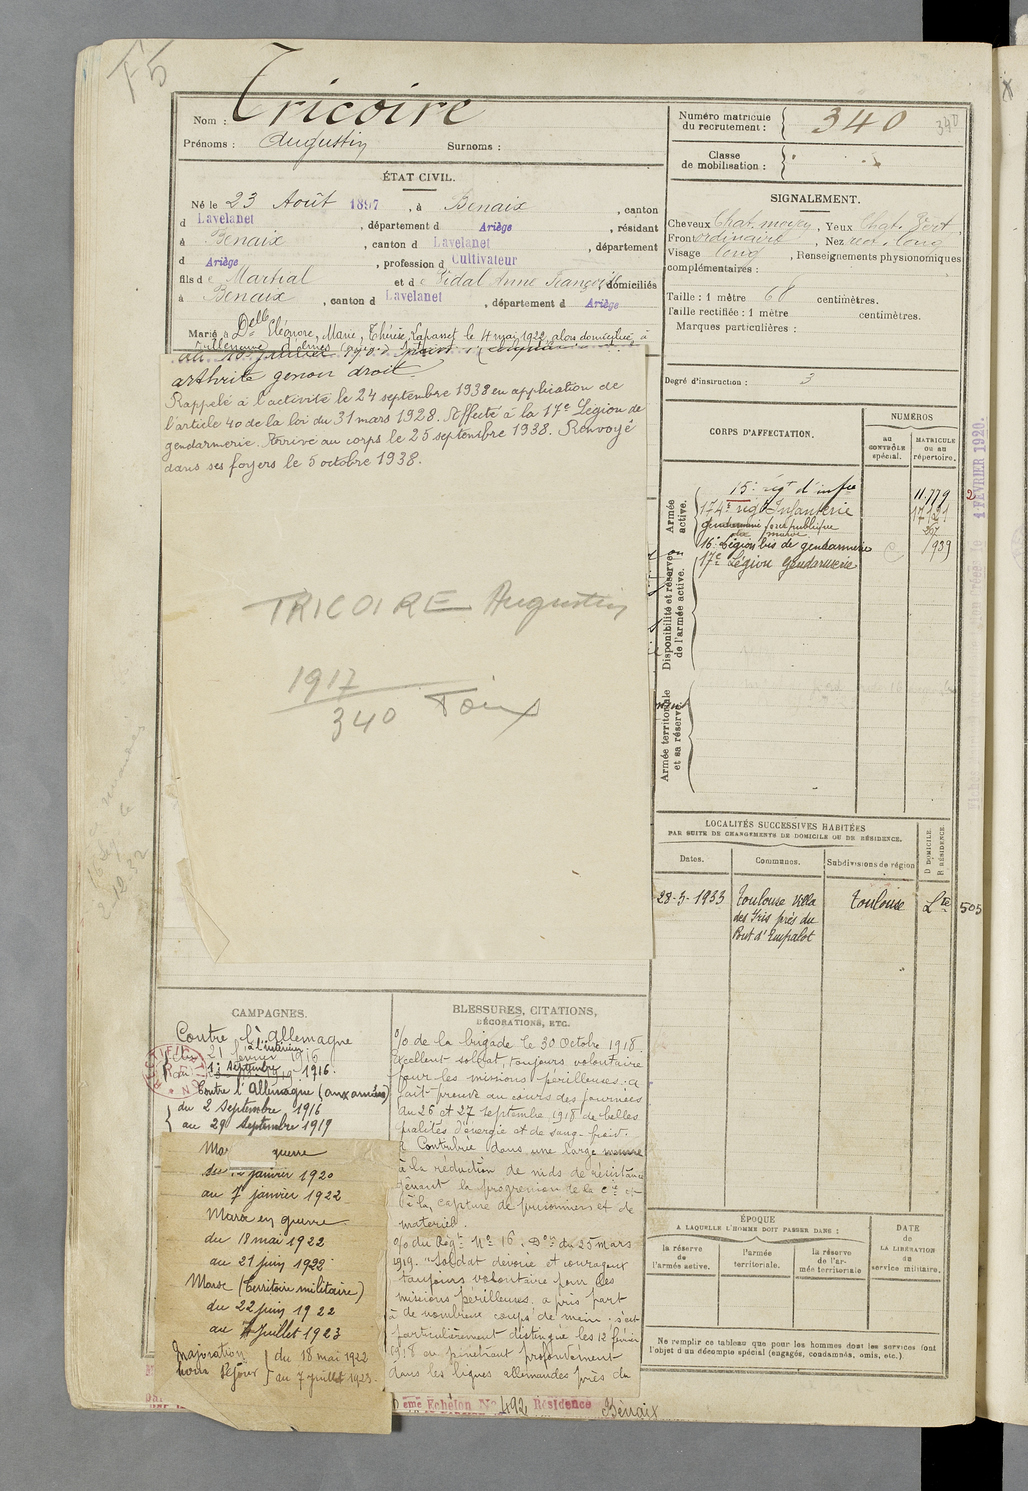 F5
Nom : Tricoire
Prénoms : Augustin Surnoms :
ÉTAT CIVIL.
Né le 23 Août 1897, à Benaix, canton
d Lavelanet, département d Ariège, résidant
à Benaix, canton d Lavelanet, département
d Ariège, profession d Cultivateur
fils de Martial et de Vidal Anne Françoise domiciliés
à Benaix, canton d Lavelanet, département d Ariège
Marié à Delle Eléonore, Marie, Thérèse, Lapasset le 4 mai 1922, alors domiciliée à
arthrite genou droit
Rappelé à l'activité le 24 septembre 1938 en application de
l'article 40 de la loi du 31 mars 1928. Affecté à la 17e Légion de
gendarmerie. Arrivé au corps le 25 septembre 1938. Renvoyé
dans ses foyers le 5 octobre 1938.
TRICOIRE Augustin
1917
340 Foix
Numéro matricule
du recrutement : 340
340
Classe
de mobilisation :
SIGNALEMENT.
Cheveux Chat. moyen, Yeux Chat. Vert
Front ordinaire, Nez rect. long
Visage long, Renseignements physionomiques
complémentaires :
Taille : 1 mètre 68 centimètres.
Taille rectifiée : 1 mètre centimètres.
Marques particulières :
Degré d'instruction : 3
CORPS D'AFFECTATION.
NUMÉROS
au
CONTRÔLE
spécial.
MATRICULE
ou au
répertoire.
Armée
active.
15e régt d'infie 11.779
174e régt Infanterie
16e Légion bis de gendarmerie 1939
17e Légion Gendarmerie
Disponibilité et réserve
de l'armée active.
Armée territoriale
et sa réserve.
4 FÉVRIER 1920.
LOCALITÉS SUCCESSIVES HABITÉES
PAR SUITE DE CHANGEMENTS DE DOMICILE OU DE RÉSIDENCE.
Dates. Communes. Subdivisions de région
D. DOMICILE.
R. RÉSIDENCE.
28-3-1933 Toulouse Villa Toulouse 505
des Iris près du
Pont d'Empalot
CAMPAGNES.
Contre l'Allemagne
à l'intérieur
21 février 1916
1er Septembre 1916.
Contre l'Allemagne (aux armées)
du 2 Septembre 1916
au 29 Septembre 1919
guerre
janvier 1920
au 7 janvier 1922
Maroc en guerre
du 18 mai 1922
au 21 juin 1922
Maroc (Territoire militaire)
du 22 juin 1922
au 7 Juillet 1923
Majoration
hors Séjour
du 18 mai 1922
au 7 juillet 1923.
BLESSURES, CITATIONS,
DÉCORATIONS, ETC.
o/o de la brigade le 30 Octobre 1918.
Excellent soldat, toujours volontaire
pour les missions périlleuses ; a
fait preuve au cours des journées
du 26 et 27 septembre 1918 de belles
qualités d'énergie et de sang-froid.
A Contribué dans une large mesure
à la réduction de nids de résistance
gênant la progression de la Cie et
à la capture de prisonniers et de
matériel.
o/o du Régt No 16. Don du 25 mars
1919. "Soldat dévoué et courageux
toujours volontaire pour les
missions périlleuses, a pris part
à de nombreux coups de main. S'est
particulièrement distingué les 12 février
1918 en pénétrant profondément
dans les lignes allemandes près du
ÉPOQUE
A LAQUELLE L'HOMME DOIT PASSER DANS :
la réserve
de
l'armée active.
l'armée
territoriale.
la réserve
de l'ar-
mée territoriale
DATE
de
LA LIBÉRATION
du
service militaire.
Ne remplir ce tableau que pour les hommes dont les services font
l'objet d'un décompte spécial (engagés, condamnés, omis, etc.).
eme Echelon No 492 Résidence Bénaix